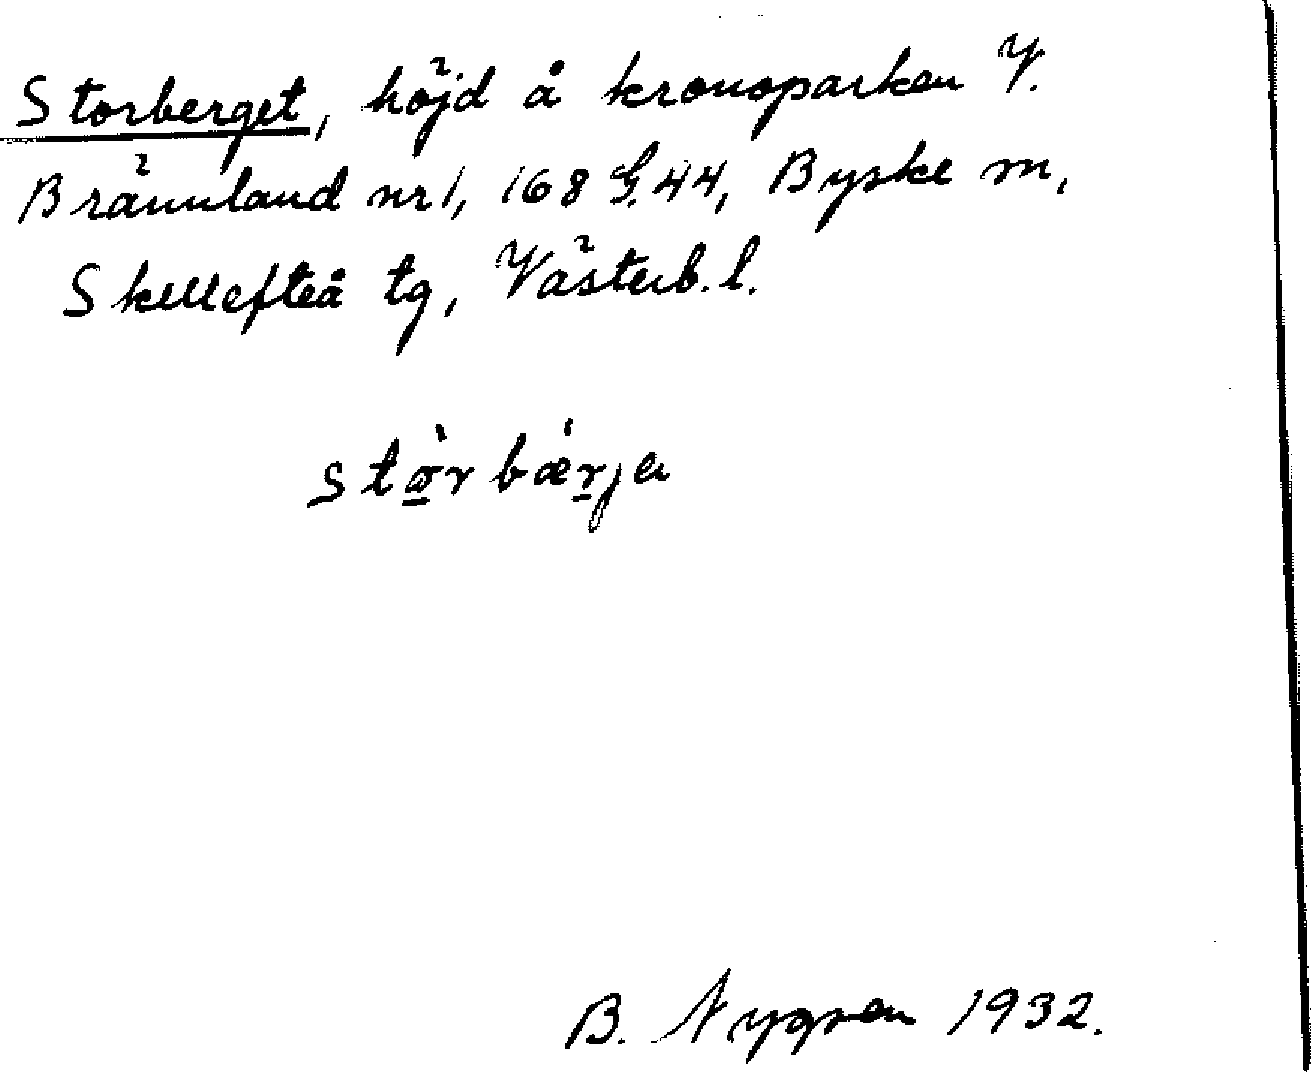 Storberget, höjd å kronoparken V.
Brännland nr 1, 168 G. 44, Byske sn,
Skellefteå tg, Västerb. l.
stòrbǽrja
B. Nygren 1932.